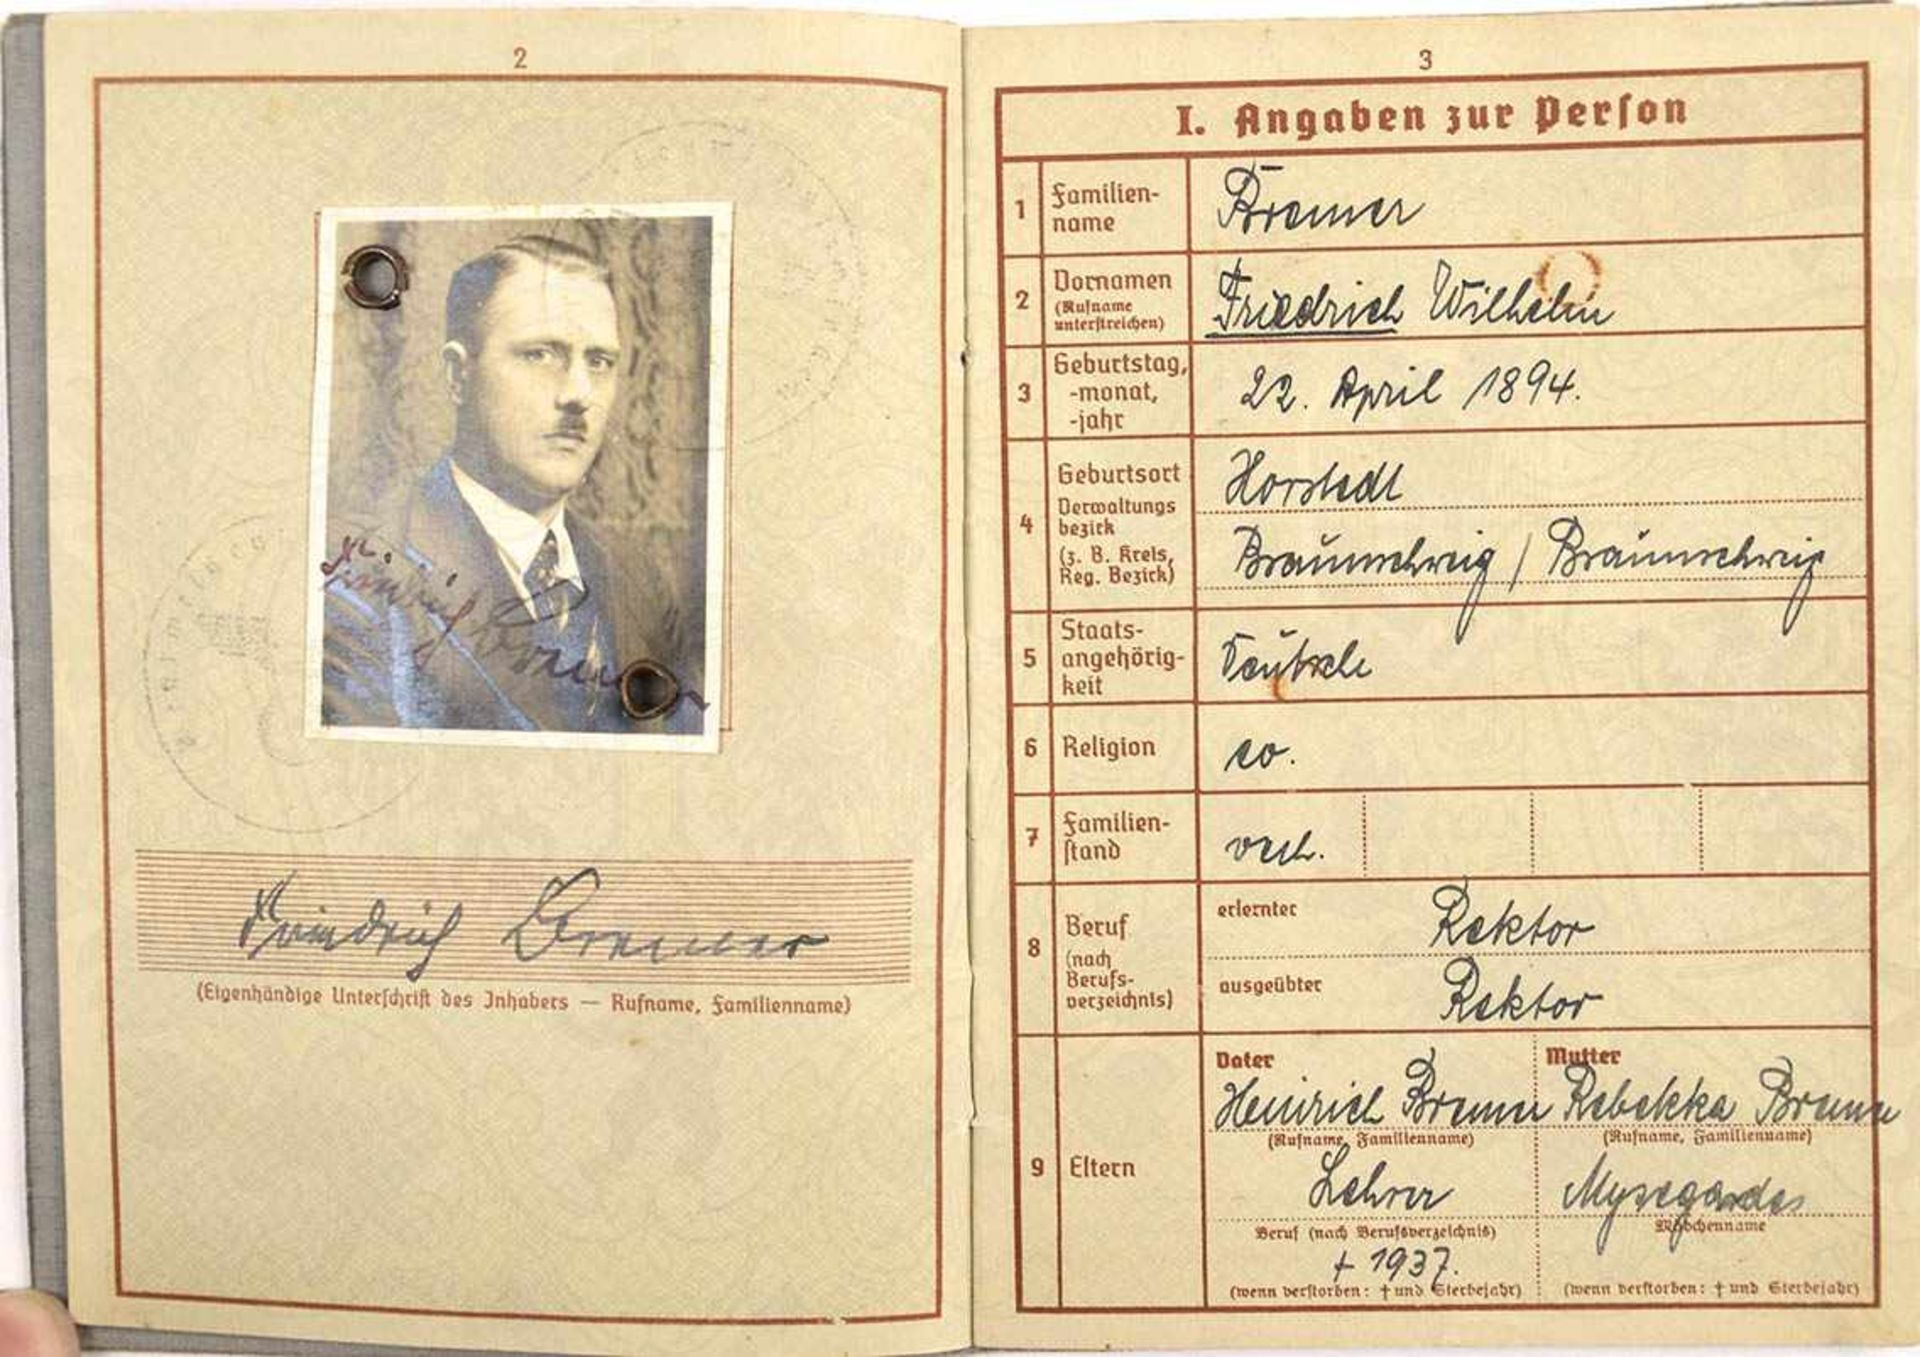 2
Friedrich Bremer
Friedrich Bremer
(Eigenhändige Unterschrift des Inhabers — Rufname, Familienname)
3
I. Angaben zur Person
1 Familien-
name
Bremer
2 Vornamen
(Rufname
unterstreichen)
Friedrich Wilhelm
3 Geburtstag,
-monat,
-jahr
22. April 1894.
4 Geburtsort
Verwaltungs
bezirk
(z. B. Kreis,
Reg. Bezirk)
Horstedt
Braunschweig / Braunschweig
5 Staats-
angehörig-
keit
Deutsche
6 Religion
7 Familien-
stand
verh.
8 Beruf
(nach
Berufs-
verzeichnis)
erlernter Rektor
ausgeübter Rektor
9 Eltern
Vater
Heinrich Bremer
(Rufname, Familienname)
Lehrer
Beruf (nach Berufsverzeichnis)
† 1937.
(wenn verstorben: † und Sterbejahr)
Mutter
Rebekka Bremer
(Rufname, Familienname)
Mädchenname
(wenn verstorben: † und Sterbejahr)